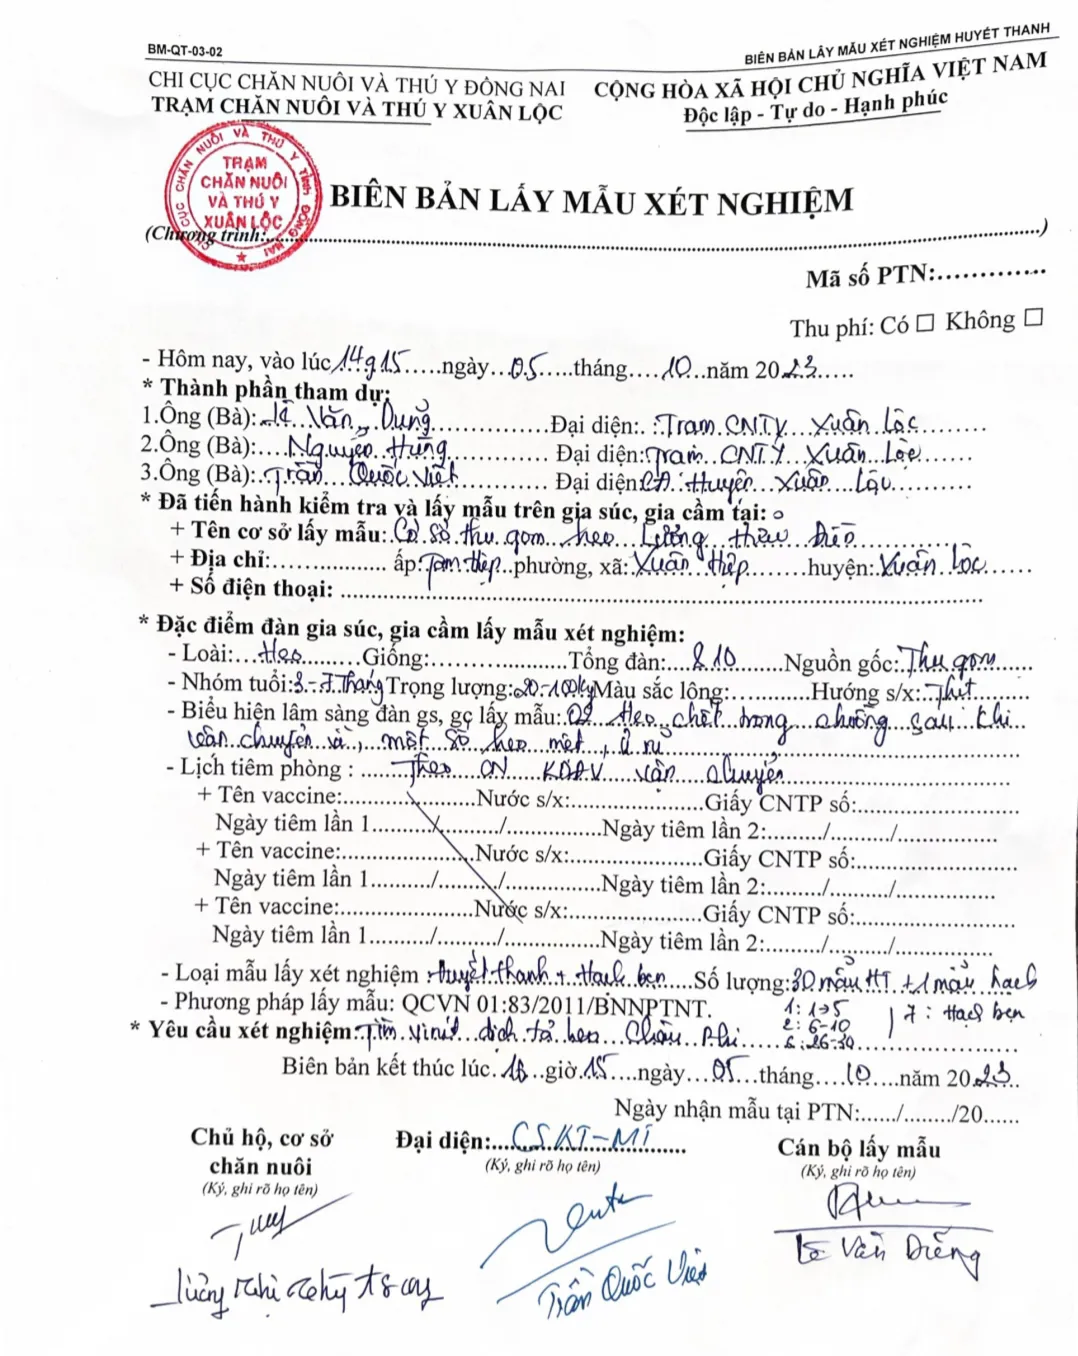 BM-QT-03-02
BIÊN BẢN LẤY MẪU XÉT NGHIỆM HUYẾT THANH
CHI CỤC CHĂN NUÔI VÀ THÚ Y ĐỒNG NAI
CỘNG HÒA XÃ HỘI CHỦ NGHĨA VIỆT NAM
TRẠM CHĂN NUÔI VÀ THÚ Y XUÂN LỘC
Độc lập - Tự do - Hạnh phúc
CHI CỤC CHĂN NUÔI VÀ THÚ Y TỈNH ĐỒNG NAI
TRẠM
CHĂN NUÔI
VÀ THÚ Y
XUÂN LỘC
BIÊN BẢN LẤY MẪU XÉT NGHIỆM
(Chương trình:...)
Mã số PTN:.............
Thu phí: Có □ Không □
- Hôm nay, vào lúc 14g15.....ngày...05.....tháng....10..năm 2023.....
* Thành phần tham dự:
1.Ông (Bà): Lê Văn Dũng Đại diện: Trạm CNTY Xuân Lộc
2.Ông (Bà): Nguyễn Hùng Đại diện: Trạm CNTY Xuân Lộc
3.Ông (Bà): Trần Quốc Việt Đại diện: CA. Huyện Xuân Lộc
* Đã tiến hành kiểm tra và lấy mẫu trên gia súc, gia cầm tại:
+ Tên cơ sở lấy mẫu: Cơ sở thu gom heo
+ Địa chỉ:................ ấp: Tam Hiệp..phường, xã: Xuân Hiệp........huyện: Xuân Lộc......
+ Số điện thoại: ...
* Đặc điểm đàn gia súc, gia cầm lấy mẫu xét nghiệm:
- Loài:...Heo.........Giống:.....................Tổng đàn:....210.......Nguồn gốc: Thu gom......
- Nhóm tuổi: 3-7 Tháng Trọng lượng: 20-100kg Màu sắc lông:...........Hướng s/x: Thịt........
- Biểu hiện lâm sàng đàn gs, gc lấy mẫu: 02 Heo chết trong chuồng sau khi
vận chuyển về, một số heo mệt, ủ rũ
- Lịch tiêm phòng : ......Theo CN KDĐV vận chuyển
+ Tên vaccine:...................Nước s/x:...................Giấy CNTP số:......................
Ngày tiêm lần 1........./........./..............Ngày tiêm lần 2:........./........./..............
+ Tên vaccine:...................Nước s/x:...................Giấy CNTP số:......................
Ngày tiêm lần 1........./........./..............Ngày tiêm lần 2:........./........./..............
+ Tên vaccine:...................Nước s/x:...................Giấy CNTP số:......................
Ngày tiêm lần 1........./........./..............Ngày tiêm lần 2:........./........./..............
- Loại mẫu lấy xét nghiệm : Huyết thanh + Hạch bẹn....Số lượng: 30 mẫu HT + 1 mẫu hạch
- Phương pháp lấy mẫu: QCVN 01:83/2011/BNNPTNT.
1: 1→5
2: 6-10
6: 26-30
7: Hạch bẹn
* Yêu cầu xét nghiệm: Tìm Virut dịch tả heo Châu Phi
Biên bản kết thúc lúc..16..giờ.15....ngày....05...tháng....10....năm 2023...
Ngày nhận mẫu tại PTN:....../......../20......
Chủ hộ, cơ sở
chăn nuôi
(Ký, ghi rõ họ tên)
Đại diện:...CSKT-MT
(Ký, ghi rõ họ tên)
Trần Quốc Việt
Cán bộ lấy mẫu
(Ký, ghi rõ họ tên)
Lê Văn Dũng